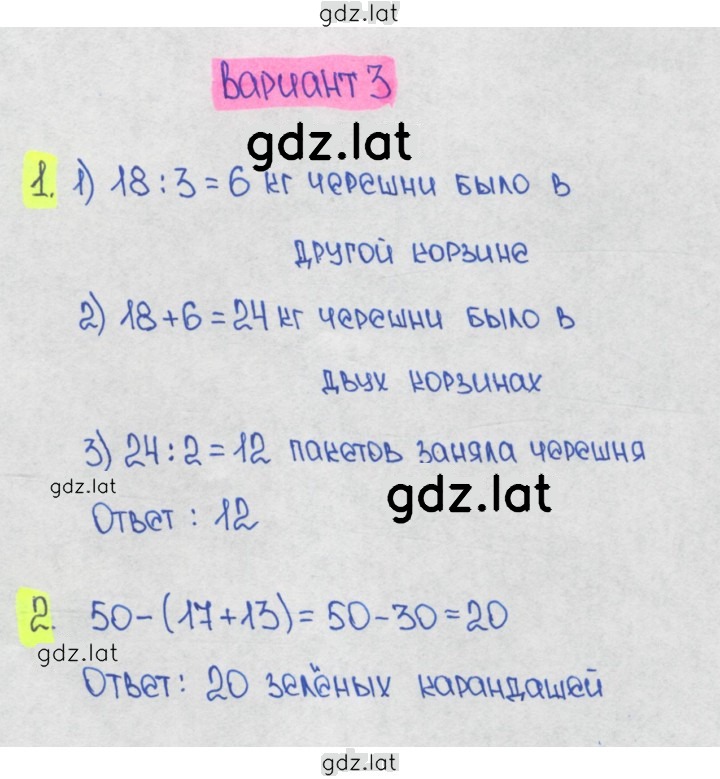 gdz.lat
Вариант 3
gdz.lat
1. 1) 18 : 3 = 6 кг черешни было в
другой корзине
2) 18 + 6 = 24 кг черешни было в
двух корзинах
3) 24 : 2 = 12 пакетов заняла черешня
gdz.lat
gdz.lat
Ответ : 12
2. 50 - (17 + 13) = 50 - 30 = 20
gdz.lat
Ответ: 20 зелёных карандашей
gdz.lat